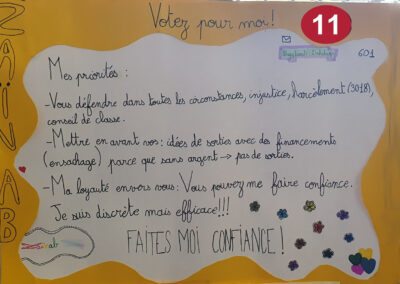 Votez pour moi!
11
601
ZAÏNAB
Mes priorités :
-Vous défendre dans toutes les circonstances, injustice, harcèlement (3018),
conseil de classe.
-Mettre en avant vos: idées de sorties avec des financements
(ensachage) parce que sans argent → pas de sorties.
-Ma loyauté envers vous: Vous pouvez me faire confiance.
Je suis discrète mais efficace!!!
FAITES MOI CONFIANCE!